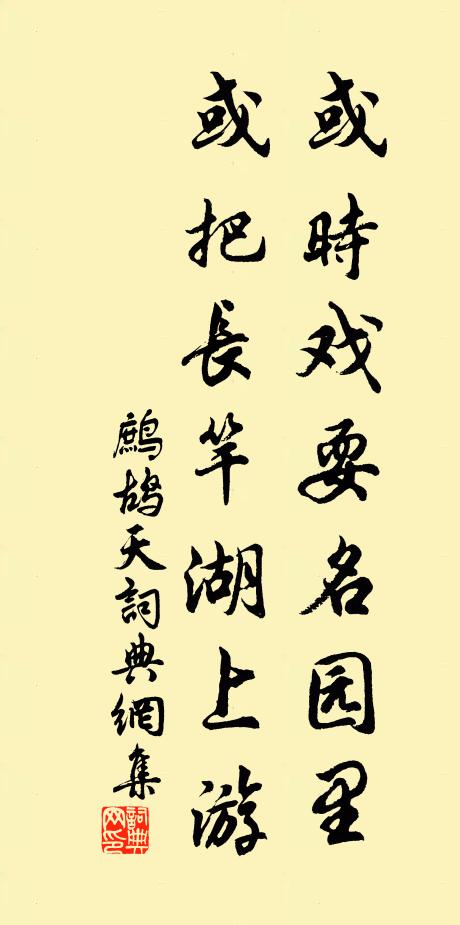 或時戏耍名园里
或把長竿湖上游
鷓鴣天詞典網集
詞典网印